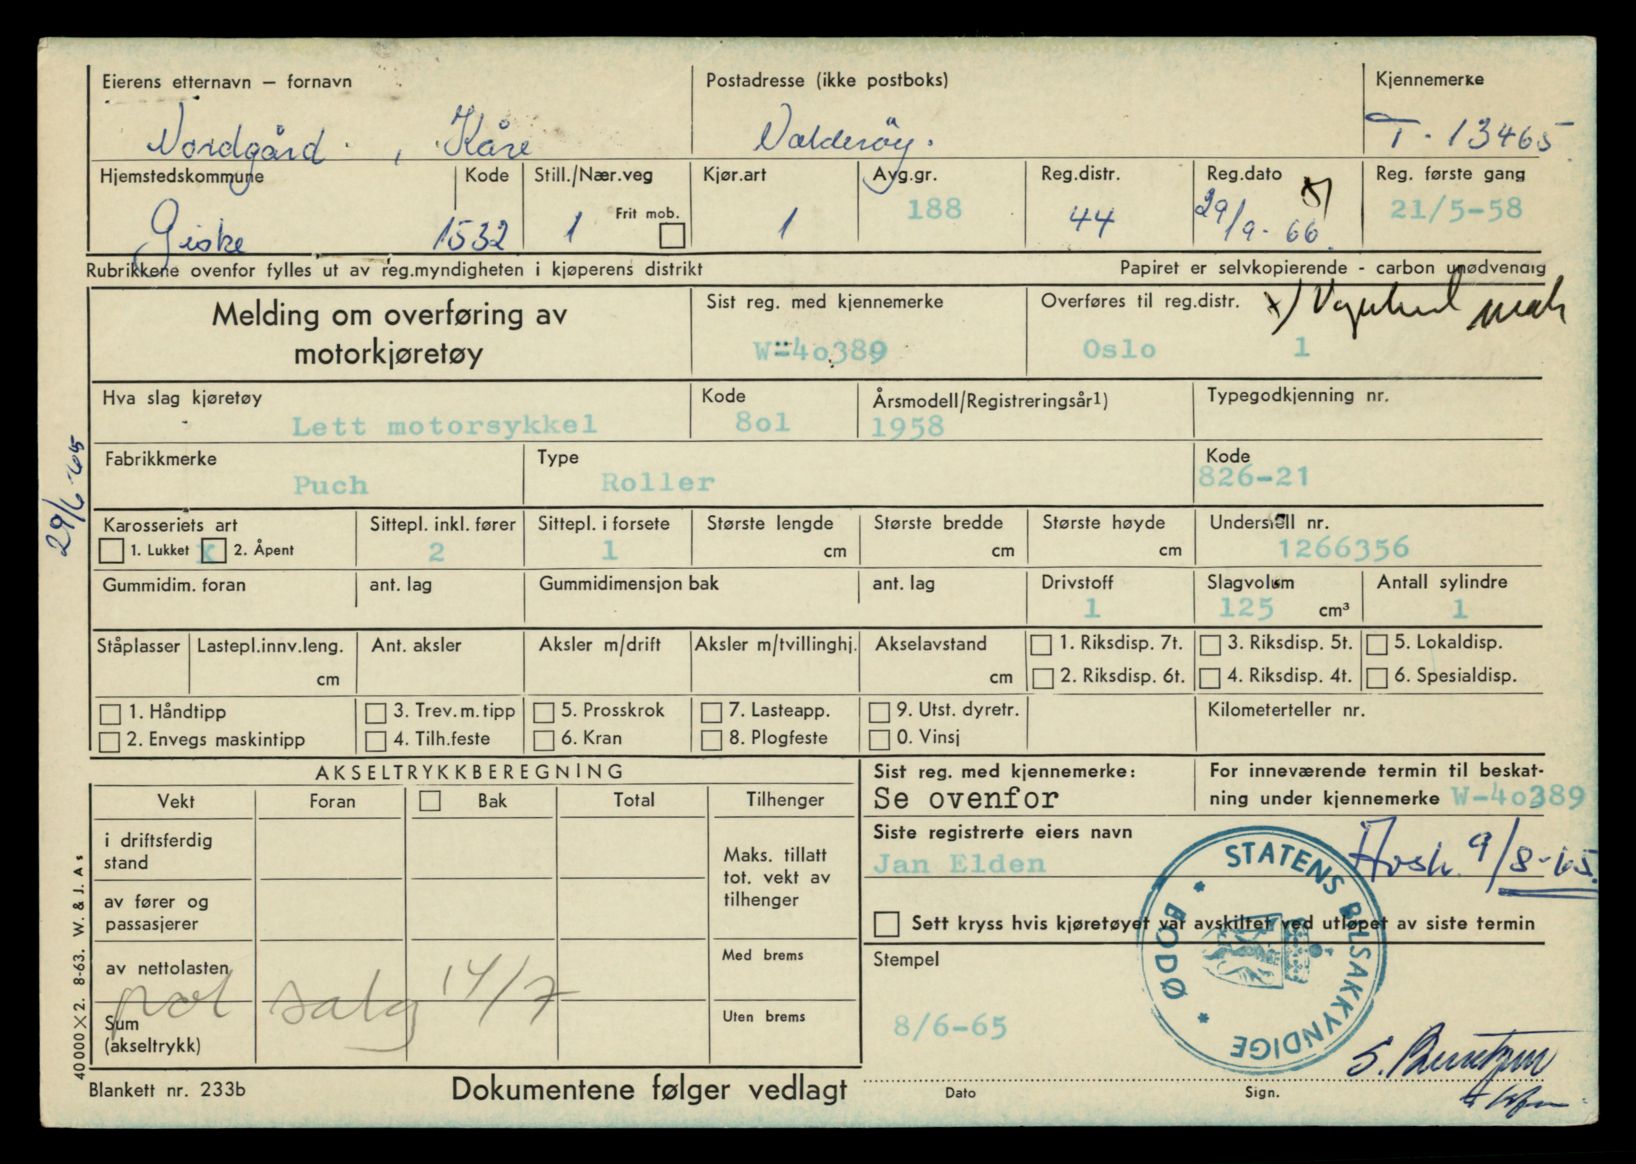 Eierens etternavn – fornavn Postadresse (ikke postboks) Kjennemerke
Nordgård, Kåre Valderöy. T-13465
Hjemstedskommune Kode Still./Nær.veg Kjør.art Avg.gr. Reg.distr. Reg.dato Reg. første gang
Frit mob.
Giske 1532 1 1 188 44 29/9-66. x) 21/5-58
Rubrikkene ovenfor fylles ut av reg.myndigheten i kjøperens distrikt Papiret er selvkopierende - carbon unødvendig
Melding om overføring av motorkjøretøy
Sist reg. med kjennemerke Overføres til reg.distr. x)
W-40389 Oslo 1
Hva slag kjøretøy Kode Årsmodell/Registreringsår1) Typegodkjenning nr.
Lett motorsykkel 8o1 1958
Fabrikkmerke Type Kode
Puch Roller 826-21
29/6-65
Karosseriets art Sittepl. inkl. fører Sittepl. i forsete Største lengde Største bredde Største høyde Understell nr.
1. Lukket x 2. Åpent 2 1 cm cm cm 1266356
Gummidim. foran ant. lag Gummidimensjon bak ant. lag Drivstoff Slagvolum Antall sylindre
1 125 cm³ 1
Ståplasser Lastepl.innv.leng. Ant. aksler Aksler m/drift Aksler m/tvillinghj. Akselavstand 1. Riksdisp. 7t. 3. Riksdisp. 5t. 5. Lokaldisp.
cm cm 2. Riksdisp. 6t. 4. Riksdisp. 4t. 6. Spesialdisp.
1. Håndtipp 3. Trev.m.tipp 5. Prosskrok 7. Lasteapp. 9. Utst. dyretr. Kilometerteller nr.
2. Envegs maskintipp 4. Tilh.feste 6. Kran 8. Plogfeste 0. Vinsj
AKSELTRYKKBEREGNING
Vekt Foran Bak Total Tilhenger
i driftsferdig stand
av fører og passasjerer
av nettolasten
Sum (akseltrykk)
Maks. tillatt tot. vekt av tilhenger
Med brems
Uten brems
pol salg 14/7
Sist reg. med kjennemerke: For inneværende termin til beskat-
Se ovenfor ning under kjennemerke W-4o389
Siste registrerte eiers navn
Jan Elden
9/8-65.
Sett kryss hvis kjøretøyet var avskiltet ved utløpet av siste termin
Stempel
STATENS BILSAKKYNDIGE * BODØ *
8/6-65
Dato Sign.
40000×2. 8-63. W. & J. A s
Blankett nr. 233b Dokumentene følger vedlagt